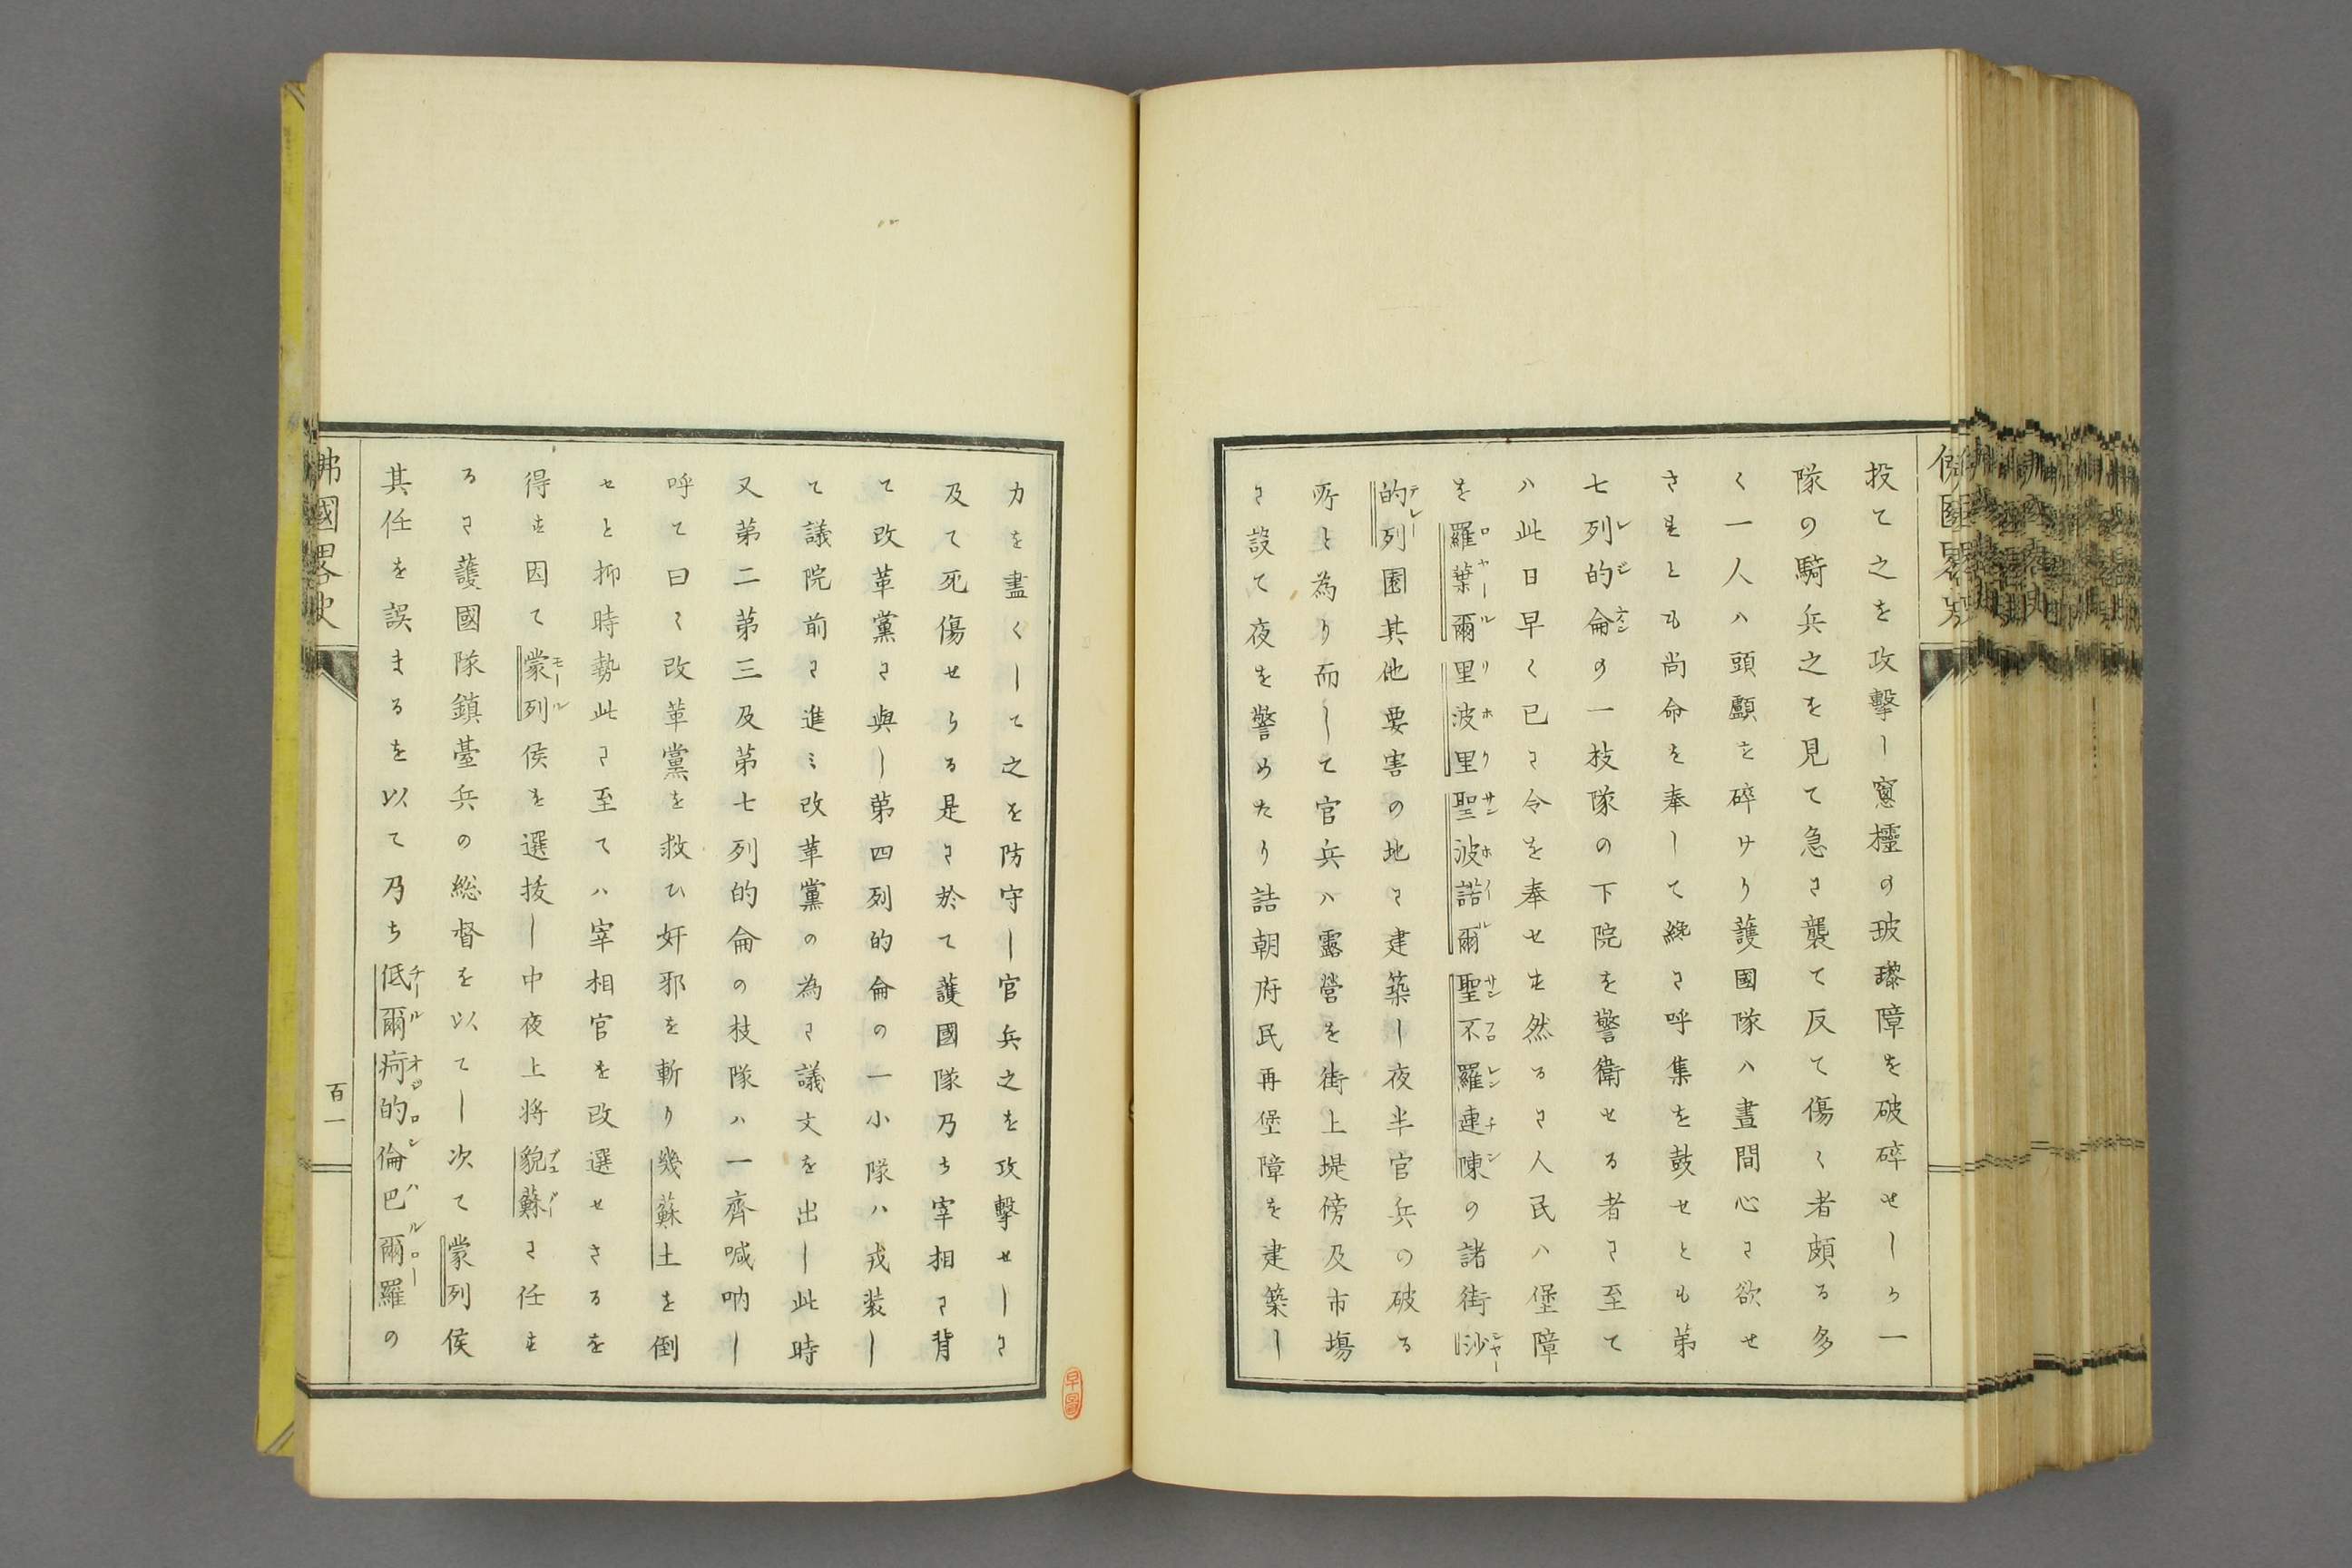 投て之を攻擊し窻櫺の玻瓈障を破碎せしか一
隊の騎兵之を見て急に襲て反て傷く者頗る多
く一人ハ頭顱を碎けり護國隊ハ晝間心に欲せ
さまとも尚命を奉して終に呼集を鼓せとも弟
七列的侖の一枝隊の下院を警衛せる者に至て
ハ此日早く已に令を奉せす然るに人民ハ堡障
を羅葉爾里波里聖波諾爾聖不羅連陳の諸街沙
的列園其他要害の地に建築し夜半官兵の破る
所と為り而して官兵ハ露營を街上堤傍及市場
に設て夜を警めたり詰朝府民再堡障を建築し
力を盡くして之を防守し官兵之を攻擊せしに
及て死傷せらる是に於て護國隊乃ち宰相に背
て改革黨に與し第四列的侖の一小隊ハ戎裝し
て議院前に進ミ改革黨の為に議文を出し此時
又第二第三及第七列的侖の枝隊ハ一齊喊吶し
呼て曰く改革黨を救ひ奸邪を斬り幾蘇士を倒
せと抑時勢此に至てハ宰相官を改選せさるを
得す因て蒙列侯を選拔し中夜上将貌蘇に任す
るに護國隊鎮臺兵の総督を以てし次て蒙列侯
其任を誤まるを以て乃ち低爾疴的倫巴爾羅の
弗國畧史
百一